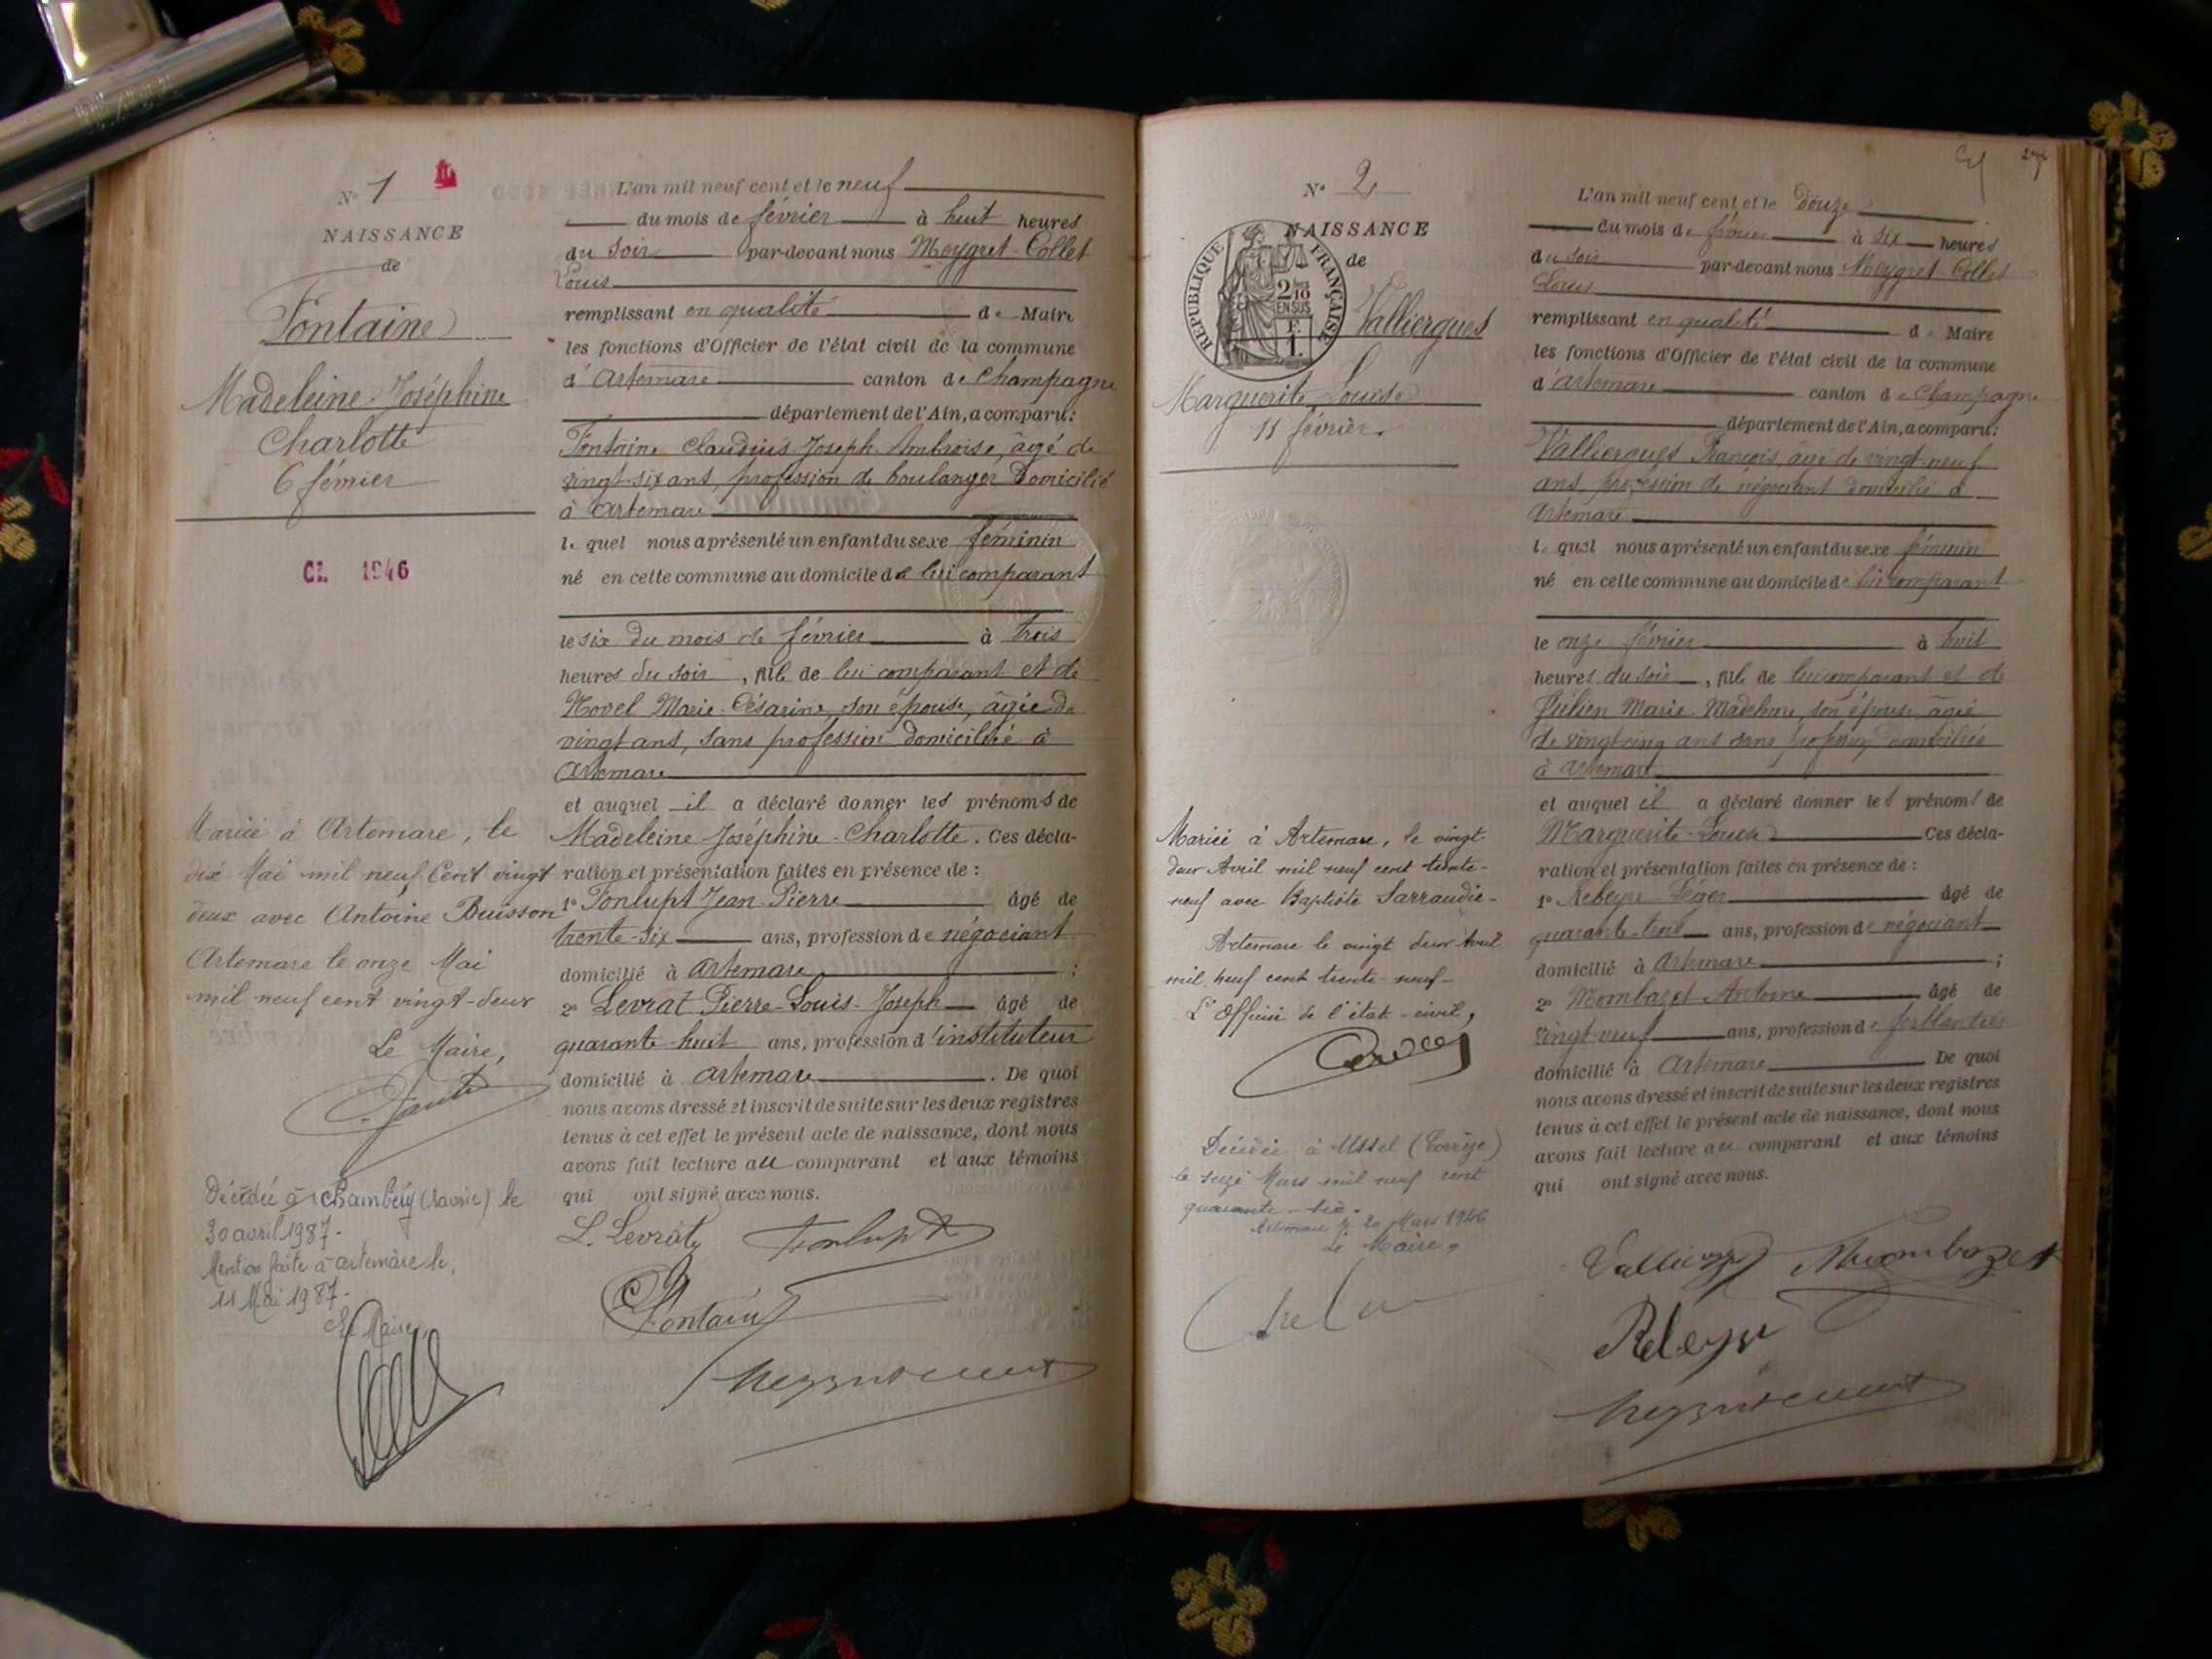 N° 1
NAISSANCE
de
Fontaine
Madeleine-Joséphine
Charlotte
6 février
CL 1946
Mariée à Artemare, le
dix Mai mil neuf Cent vingt
deux avec Antoine Buisson
Artemare le onze Mai
mil neuf cent vingt-deux
Le Maire,
Décédée à Chambéry (Savoie) le
30 avril 1987.
Mention faite à artemare le,
11 Mai 1987.
Le Maire,
L'an mil neuf cent et le neuf
du mois de février à huit heures
du soir par-devant nous Meygret-Collet
Louis
remplissant en qualité de Maire
les fonctions d'Officier de l'état civil de la commune
d'Artemare canton de Champagne
département de l'Ain, a comparu:
Fontaine Claudius Joseph Ambroise, âgé de
vingt-six ans, profession de boulanger domicilié
à Artemare
lequel nous a présenté un enfant du sexe féminin
né en cette commune au domicile de lui comparant
le six du mois de février à trois
heures du soir, fille de lui comparant et de
Hovel Marie-Césarine, son épouse, âgée de
vingt ans, sans profession domiciliée à
Artemare
et auquel il a déclaré donner les prénoms de
Madeleine-Joséphine-Charlotte. Ces décla-
ration et présentation faites en présence de :
1° Fonlupt Jean-Pierre âgé de
trente-six ans, profession de négociant
domicilié à Artemare ;
2° Levrat Pierre-Louis-Joseph âgé de
quarante-huit ans, profession d'instituteur
domicilié à Artemare. De quoi
nous avons dressé et inscrit de suite sur les deux registres
tenus à cet effet le présent acte de naissance, dont nous
avons fait lecture au comparant et aux témoins
qui ont signé avec nous.
L. Levrat Fonlupt
C Fontaine
N° 2
NAISSANCE
de
RÉPUBLIQUE FRANÇAISE
2/10
EN SUS
F.
1.
Valliergues
Marguerite Louise
11 février
Mariée à Artemare, le vingt
deux Avril mil neuf cent trente-
neuf avec Baptiste Sarraudie-
Artemare le vingt deux Avril
mil neuf cent trente-neuf-
L'Officier de l'état-civil,
Décédée à Ussel (Corrèze)
le seize Mars mil neuf cent
quarante-six.
Artemare le 20 Mars 1946
Le Maire,
L'an mil neuf cent et le douze
du mois de février à six heures
du soir par-devant nous Meygret Collet
Louis
remplissant en qualité de Maire
les fonctions d'Officier de l'état civil de la commune
d'Artemare canton de Champagne
département de l'Ain, a comparu:
Valliergues François âgé de vingt-neuf
ans, profession de négociant domicilié à
Artemare
lequel nous a présenté un enfant du sexe féminin
né en cette commune au domicile de lui comparant
le onze février à huit
heures du soir, fille de lui comparant et de
Julien Marie-Madeleine son épouse âgée
de vingt-cinq ans sans profession domiciliée
à Artemare
et auquel il a déclaré donner les prénoms de
Marguerite-Louise Ces décla-
ration et présentation faites en présence de :
1° Rebeyre Léger âgé de
quarante-trois ans, profession de négociant
domicilié à Artemare ;
2° Mombazet Antoine âgé de
vingt-neuf ans, profession de ferblantier
domicilié à Artemare De quoi
nous avons dressé et inscrit de suite sur les deux registres
tenus à cet effet le présent acte de naissance, dont nous
avons fait lecture au comparant et aux témoins
qui ont signé avec nous.
Valliergues Mombazet
Rebeyre